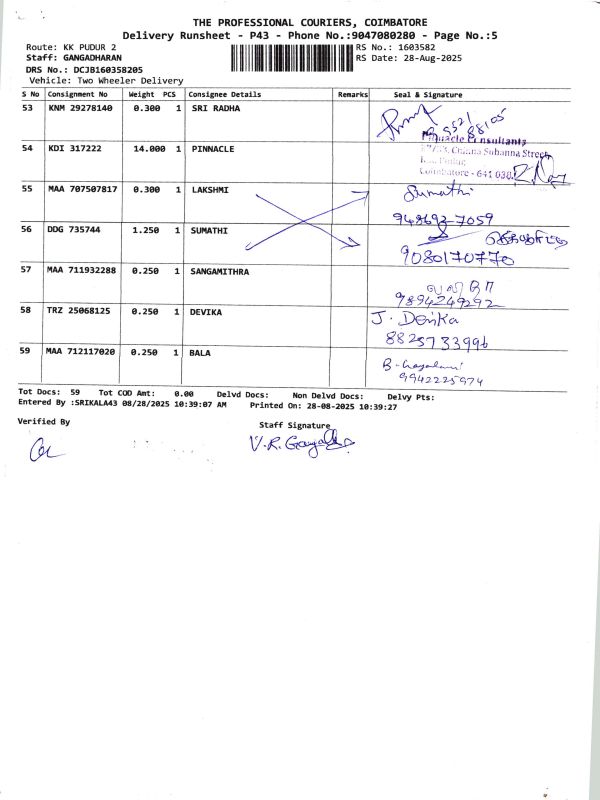 THE PROFESSIONAL COURIERS, COIMBATORE
Delivery Runsheet - P43 - Phone No.:9047080280 - Page No.:5
Route: KK PUDUR 2 RS No.: 1603582
Staff: GANGADHARAN RS Date: 28-Aug-2025
DRS No.: DCJB160358205
Vehicle: Two Wheeler Delivery
S No Consignment No Weight PCS Consignee Details Remarks Seal & Signature
53 KNM 29278140 0.300 1 SRI RADHA
54 KDI 317222 14.000 1 PINNACLE
Pinnacle Consultants
Chinna Subanna Street,
Coimbatore - 641 038.
55 MAA 707507817 0.300 1 LAKSHMI Sumathi
948693-7059
56 DDG 735744 1.250 1 SUMATHI
9080170770
57 MAA 711932288 0.250 1 SANGAMITHRA
9894249292
58 TRZ 25068125 0.250 1 DEVIKA J. Devika
8825733996
59 MAA 712117020 0.250 1 BALA
9942225974
Tot Docs: 59 Tot COD Amt: 0.00 Delvd Docs: Non Delvd Docs: Delvy Pts:
Entered By :SRIKALA43 08/28/2025 10:39:07 AM Printed On: 28-08-2025 10:39:27
Verified By Staff Signature